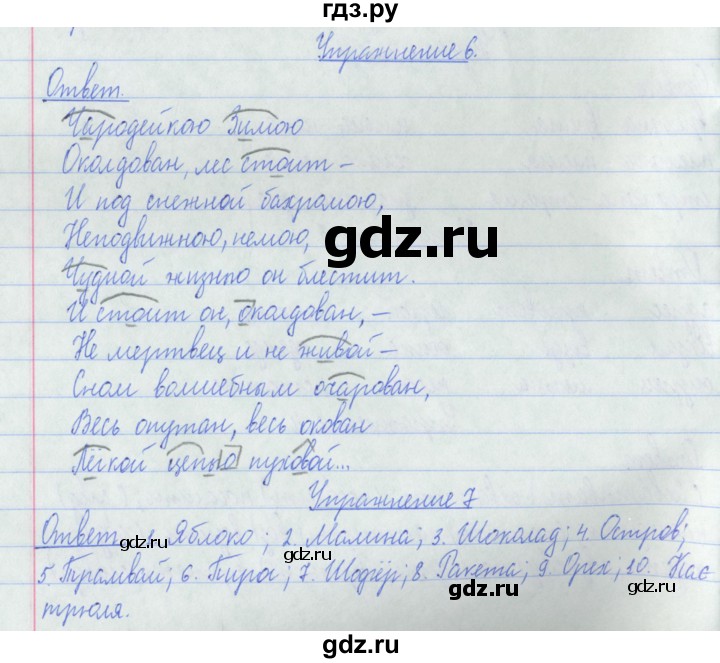 гдз.ру
Упражнение 6.
Ответ.
Чародейкою Зимою
Околдован, лес стоит –
И под снежной бахрамою,
Неподвижною, немою,
gdz.ru
Чудной жизнью он блестит.
И стоит он, околдован, –
Не мертвец и не живой –
Сном волшебным очарован,
Весь опутан, весь окован
Лёгкой цепью пуховой...
gdz.ru
Упражнение 7
Ответ. 1. Яблоко; 2. Малина; 3. Шоколад; 4. Остров;
gdz.ru
gdz.ru
5. Трамвай; 6. Пирог; 7. Шофёр; 8. Ракета; 9. Орех; 10. Кас
gdz.ru
трюля.
gdz.ru